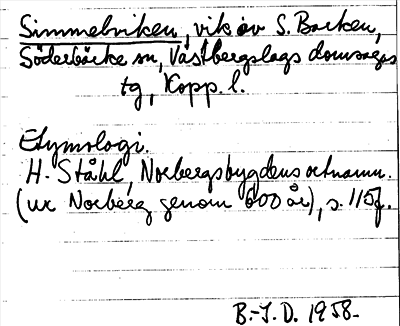 Simmelsviken, vik av S. Barken,
Söderbärke sn, Västbergslags domsagas
tg, Kopp. l.
Etymologi.
H. Ståhl, Norbergsbygdens ortnamn.
(ur Norberg genom 600 år), s. 115f.
B.-I.D. 1958.